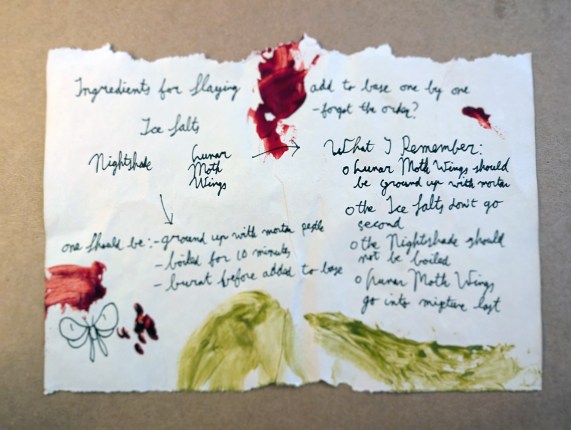 Ingredients for Slaying
Ice Salts
Nightshade
Lunar
Moth
Wings
one should be: - ground up with mortar pestle
- boiled for 10 minutes
- burnt before added to base
add to base one by one
- forgot the order?
What I Remember:
o Lunar Moth Wings should
be ground up with mortar
o the Ice Salts don't go
second
o the Nightshade should
not be boiled
o Lunar Moth Wings
go into mixture last